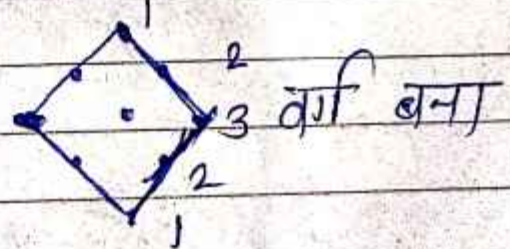 1
2
3 वर्ग बना
2
1